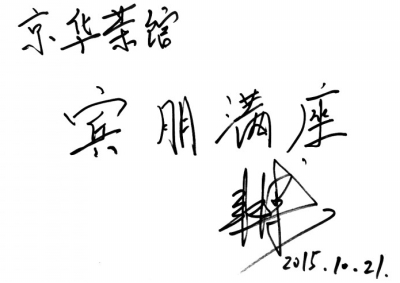 京华茶馆
宾朋满座
2015.10.21.